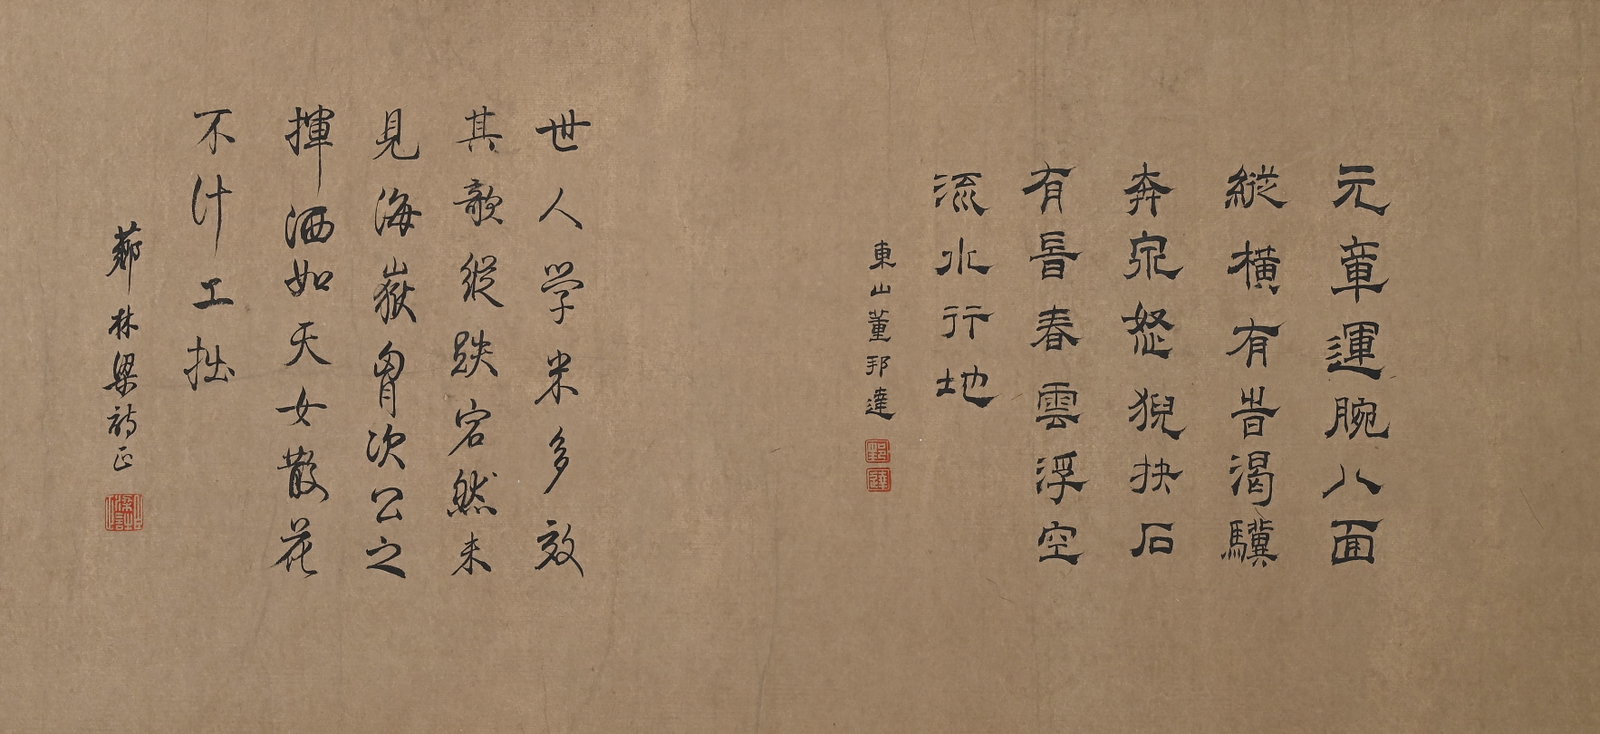 元章運腕八面
縱橫有昔渴驥
奔泉怒猊抉石
有昔春雲浮空
流水行地
東山董邦達
世人学米多效
其欹縱跌宕然未
見海嶽胷次公之
揮洒如天女散花
不计工拙
薌林梁詩正